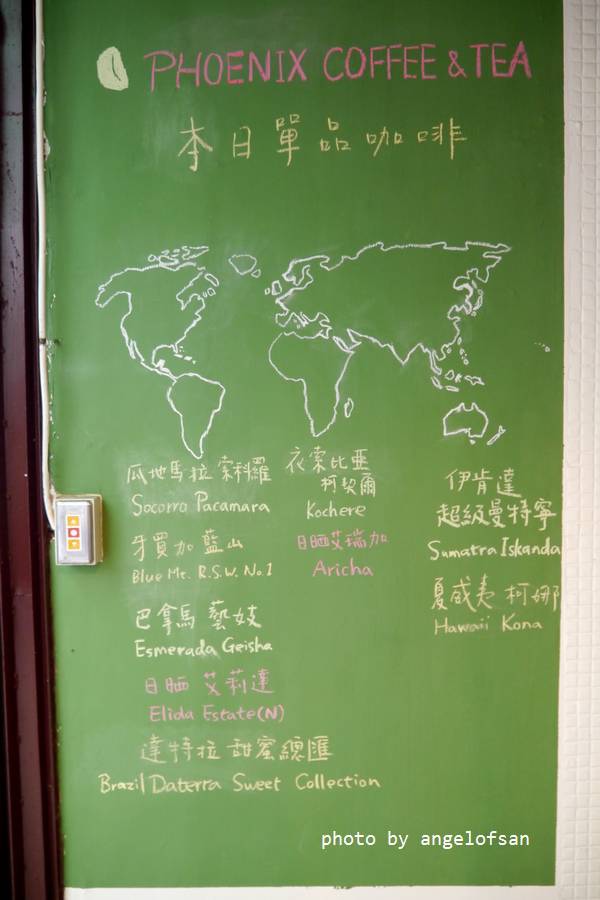 PHOENIX COFFEE & TEA
本日單品咖啡
瓜地馬拉 索科羅
Socorro Pacamara
牙買加 藍山
Blue Mt. R.S.W. No.1
巴拿馬 藝妓
Esmerada Geisha
日晒 艾莉達
Elida Estate(N)
達特拉 甜蜜總匯
Brazil Daterra Sweet Collection
衣索比亞
柯契爾
Kochere
日晒艾瑞加
Aricha
伊肯達
超級曼特寧
Sumatra Iskanda
夏威夷 柯娜
Hawaii Kona
photo by angelofsan